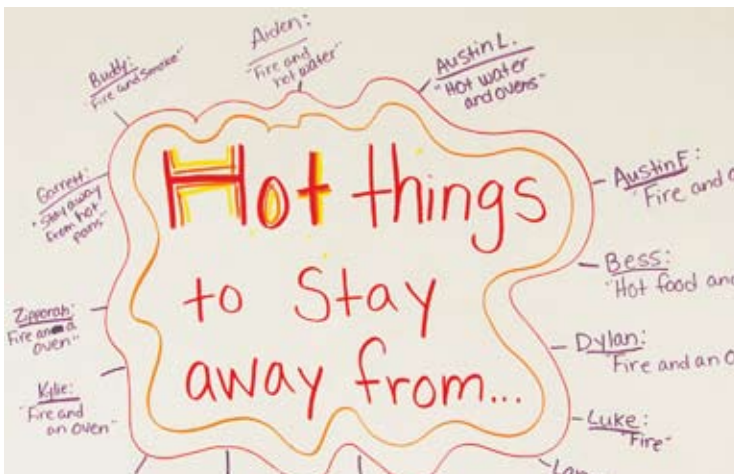 Hot things
to Stay
away from...
Buddy:
"Fire and smoke"
Aiden:
"Fire and
hot water"
Austin L.
"Hot water
and ovens"
Austin F:
"Fire and
Bess:
"Hot food and
Dylan:
"Fire and an o
Luke:
"Fire"
Garrett:
"Stay away
from hot
pans"
Zipporah:
Fire and a
oven"
Kylie:
"Fire and
an oven"